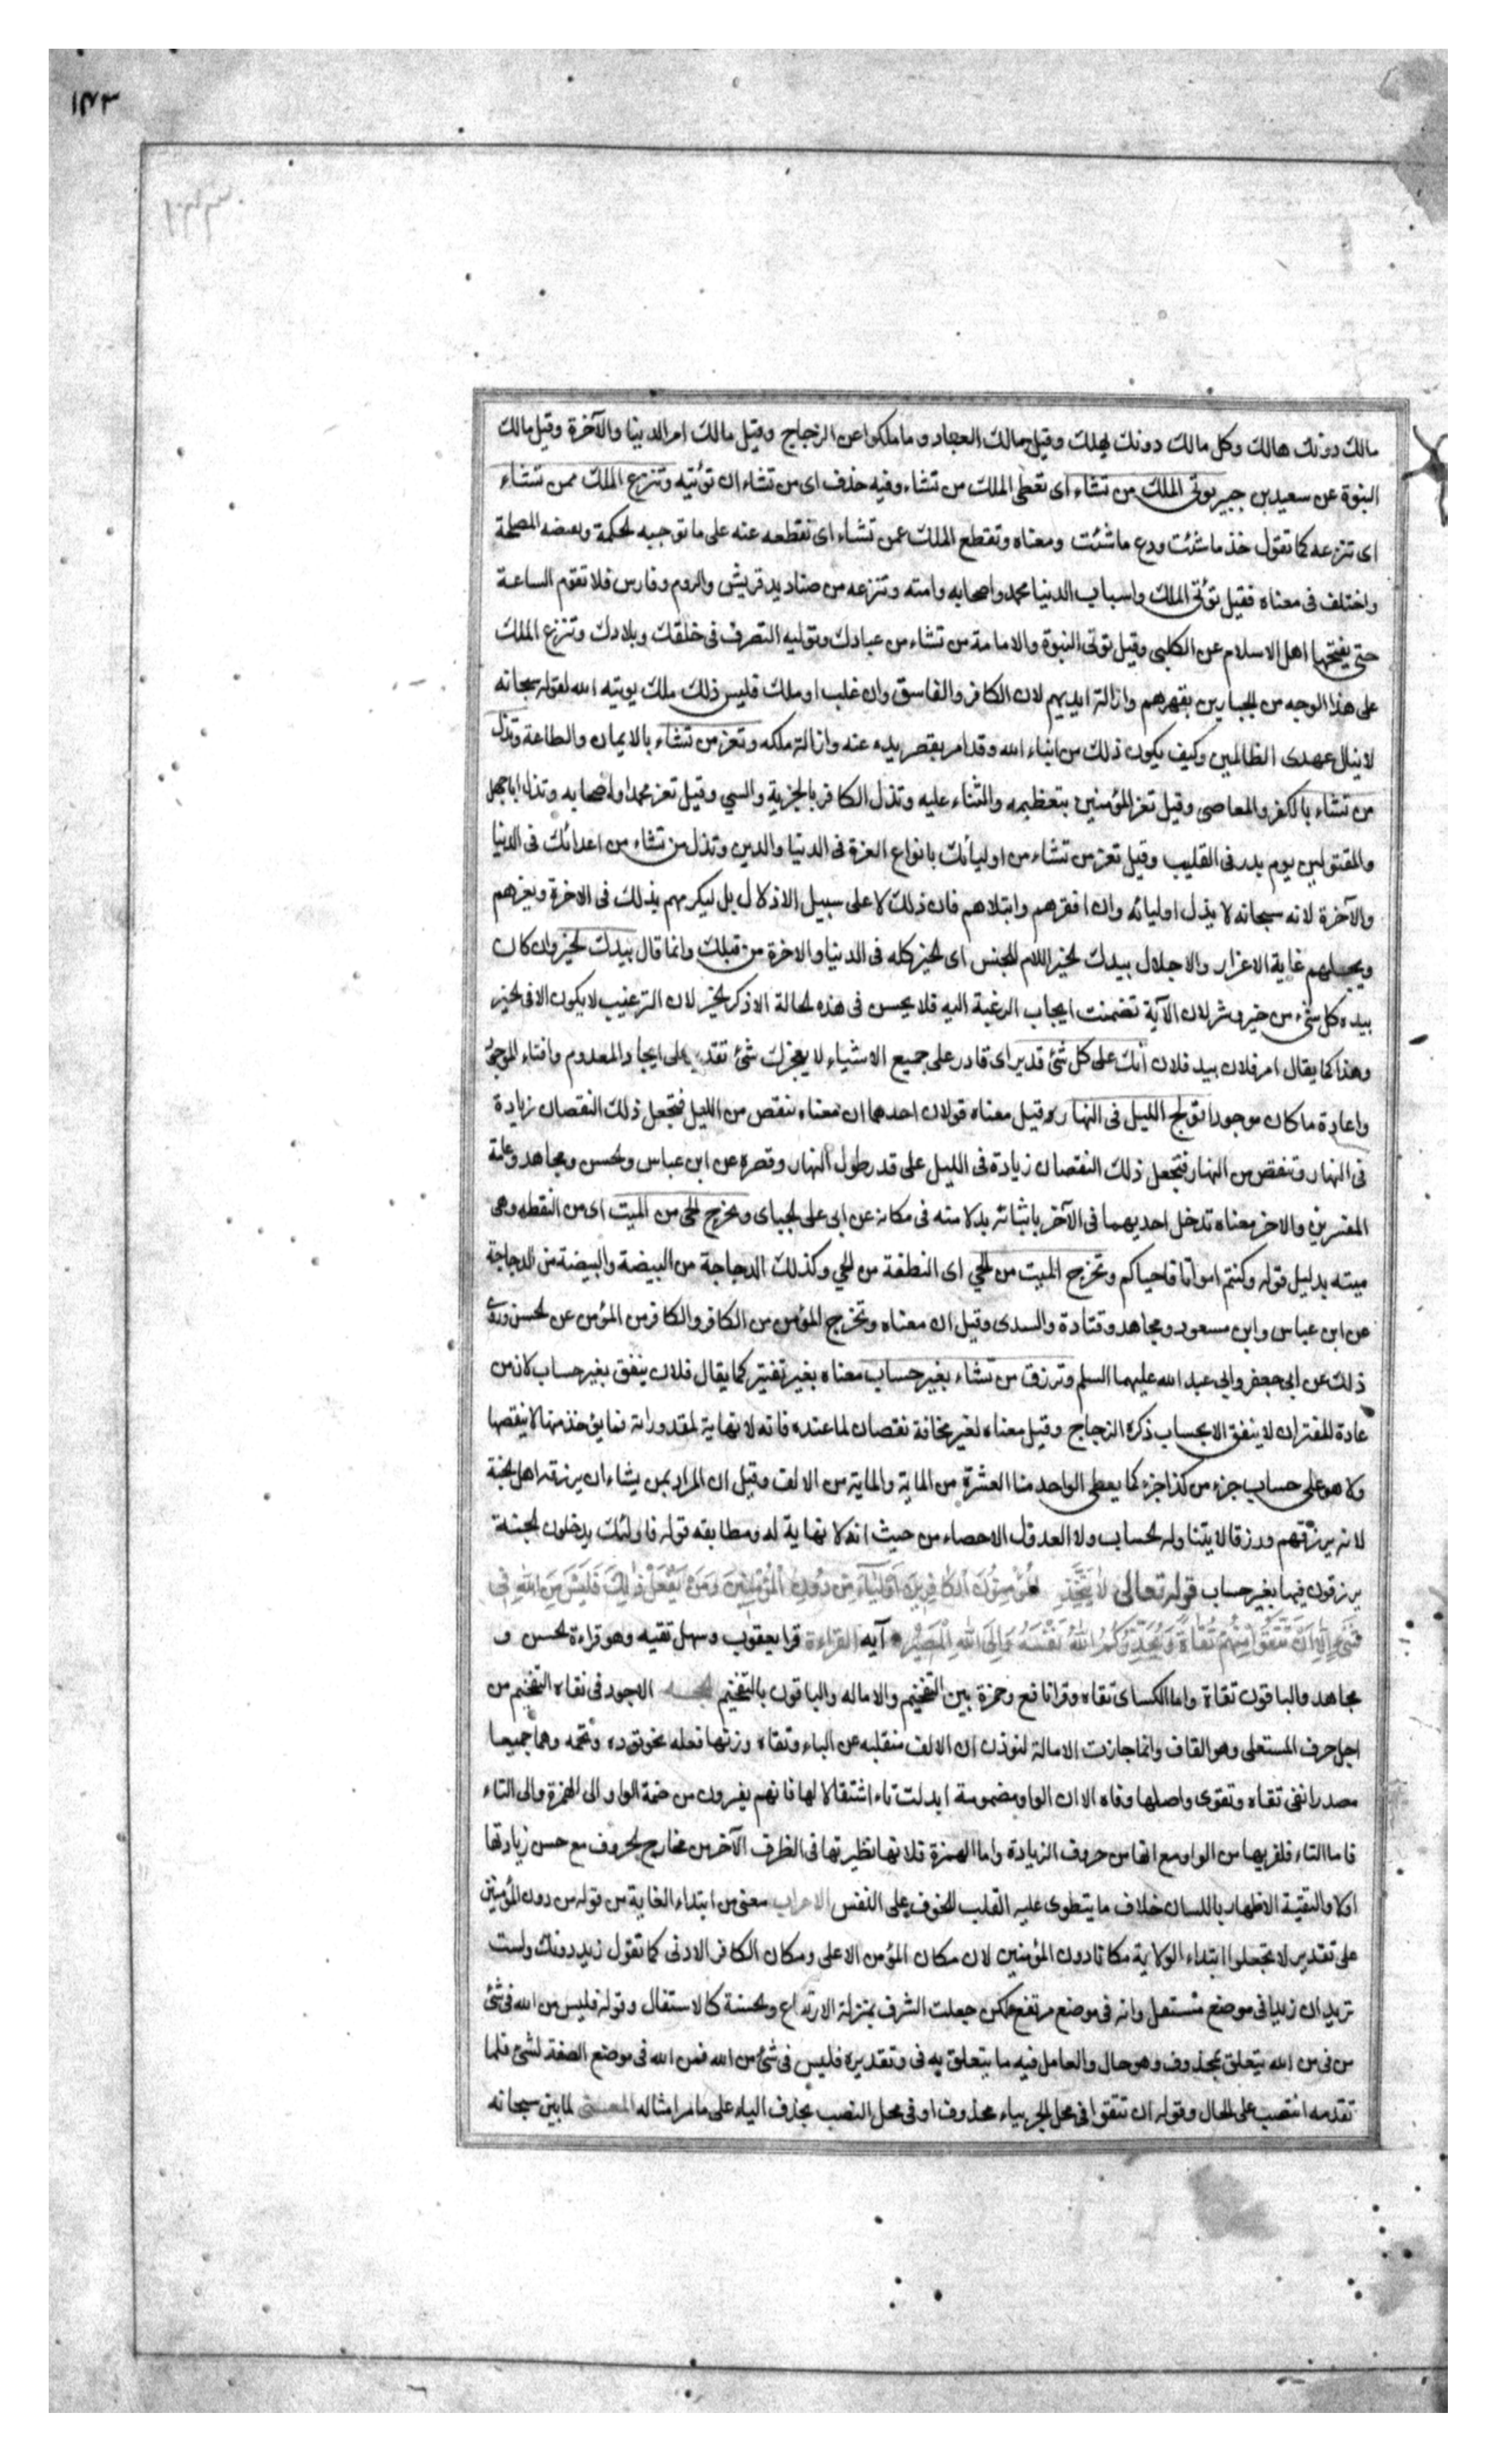 ١٤٣
مالك دونك هالك وكل مالك دونك يهلك وقيل مالك العباد وما ملكوا عن الزجاج وقيل مالك امر الدنيا والآخرة وقيل مالك
النبوة عن سعيد بن جبير توتى الملك من تشاء اى تعطى الملك من تشاء وفيه حذف اى من تشاء ان تؤتيه وتنزع الملك ممن تشاء
اى تنزعه كما تقول خذ ما شئت ودع ما شئت ومعناه وتقطع الملك عمن تشاء اى تقطعه عنه على ما توجبه لحكمة وبعضه المصلحة
واختلف فى معناه فقيل تؤتى الملك واسباب الدنيا محمد واصحابه وامته وتنزعه من صناديد قريش والروم وفارس فلا تقوم الساعة
حتى يفتحها اهل الاسلام عن الكلبى وقيل توتى النبوة والامامة من تشاء من عبادك وتوليه التصرف فى خلقك وبلادك وتنزع الملك
على هذا الوجه من لجبارين بقهرهم وازالة ايديهم لان الكافر والفاسق وان غلب او ملك فليس ذلك ملك يوتيه الله لقوله سبحانه
لا ينال عهدى الظالمين وكيف يكون ذلك من ايتاء الله وقد امر بقصر يده عنه وازالة ملكه وتعز من تشاء بالايمان والطاعة وتذل
من تشاء بالكفر والمعاصى وقيل تعز المؤمنين بتعظيمه والثناء عليه وتذل الكافر بالجزية والسبي وقيل تعز محمدا واصحابه وتذل اباجهل
والمقتولين يوم بدر فى القليب وقيل تعز من تشاء من اوليائك بانواع العزة فى الدنيا والدين وتذل من تشاء من اعدائك فى الدنيا
والآخرة لانه سبحانه لا يذل اوليائه وان افقرهم وابتلاهم فان ذلك لا على سبيل الاذلال بل ليكرمهم بذلك فى الاخرة ويعزهم
ويجلهم غاية الاعزاز والاجلال بيدك لخير اللام للجنس اى لخير كله فى الدنيا والاخرة من قبلك وانما قال بيدك لخير وان كان
بيده كل شئ من خير وشر لان الآية تضمنت ايجاب الرغبة اليه فلا يحسن فى هذه لحالة الا ذكر لخير لان الترغيب لا يكون الا فى لخير
وهذا كما يقال امر فلان بيد فلان انك على كل شئ قدير اى قادر على جميع الاشياء لا يعجزك شئ تقدر على ايجاد المعدوم وافناء الموجود
واعادة ما كان موجودا تولج الليل فى النهار وقيل معناه قولان احدهما ان معناه ينقص من الليل فتجعل ذلك النقصان زيادة
فى النهار وتنقص من النهار فتجعل ذلك النقصان زيادة فى الليل على قدر طول النهار وقصره عن ابن عباس ولحسن ومجاهد وعامة
المفسرين والاخر معناه تدخل احديهما فى الآخر باتيانه بدلا منه فى مكانه عن ابى على لجباى وتخرج لحى من الميت اى من النطفه وهى
ميته بدليل قوله وكنتم امواتا فاحياكم وتخرج الميت من لحي اى النطفة من لحي وكذلك الدجاجة من البيضة والبيضة من الدجاجة
عن ابن عباس وابن مسعود ومجاهد وقتادة والسدى وقيل ان معناه وتخرج المؤمن من الكافر والكافر من المؤمن عن لحسن وروى
ذلك عن ابى جعفر وابى عبد الله عليهما السلم وترزق من تشاء بغير حساب معناه بغير تقتير كما يقال فلان ينفق بغير حساب لان من
عادة المقتر ان لا ينفق الا بحساب ذكره الزجاج وقيل معناه لغير مخافة نقصان لما عنده فانه لا نهاية لمقدوراته فما يؤخذ منها لا ينقصها
ولا هو على حساب جزء من كذا جزء كما يعطى الواحد منا العشرة من الماية والماية من الالف وقيل ان المراد بمن يشاء ان يرزقه اهل لجنة
لانه يرزقهم ورزقا لا يتناوله لحساب ولا العد ول الاحصاء من حيث انه لا نهاية له ومطابقه قوله فاولئك يدخلون لجنة
يرزقون فيها بغير حساب قوله تعالى لا يَتَّخِذِ الْمُؤْمِنُونَ الْكَافِرِينَ اَوْلِيَآءَ مِنْ دُونِ الْمُؤْمِنِينَ وَمَنْ يَفْعَلْ ذٰلِكَ فَلَيْسَ مِنَ اللّٰهِ فِى
شَىْءٍ اِلَّا اَنْ تَتَّقُوا مِنْهُمْ تُقَاةً وَيُحَذِّرُكُمُ اللّٰهُ نَفْسَهُ وَاِلَى اللّٰهِ الْمَصِيْرُ آيه القراءة قرا يعقوب وسهل تقيه وهو قراءة لحسن و
مجاهد والباقون تقاة واما الكساى تقاه وقرا نافع وحمزة بين التفخيم والاماله والباقون بالتفخيم الاجود فى تقاه التفخيم من
اجل حرف المستعلى وهو القاف وانما جازت الامالة لتوذن ان الالف منقلبه عن الياء وتقاه وزنها فعله نحو تؤده وتخمه وهما جميعا
مصدر اتقى تقاه وتقوى واصلها وقاه الا ان الواو مضمومة ابدلت تاء استثقالا لها فانهم يفرون من ضمة الواو الى الهمزة والى التاء
فاما التاء فلقربها من الواو مع انها من حروف الزيادة واما الهمزة فلانها نظيرتها فى الطرف الآخر من مخارج لحروف مع حسن زيادتها
اولا والتقية الاظهار باللسان خلاف ما ينطوى عليه القلب للخوف على النفس الاعراب معنى من ابتداء الغاية من قوله من دون المؤمنين
على تقدير لا تجعلوا ابتداء الولاية مكانا دون المؤمنين لان مكان المؤمن الاعلى ومكان الكافر الادنى كما تقول زيد دونك ولست
تريد ان زيدا فى موضع مستفل وانه فى موضع مرتفع لكن جعلت الشرف بمنزلة الارتفاع ولخسة كالاستفال وقوله فليس من الله فى شئ
من فى من الله يتعلق بمحذوف وهو حال والعامل فيه ما يتعلق به فى وتقديره فليس فى شئ من الله فمن الله فى موضع الصفة لشئ فلما
تقدمه انتصب على الحال وقوله ان تتقوا فى محل الجر بياء محذوف او فى محل النصب بحذف الياء على ما مر امثاله المعنى لما بين سبحانه